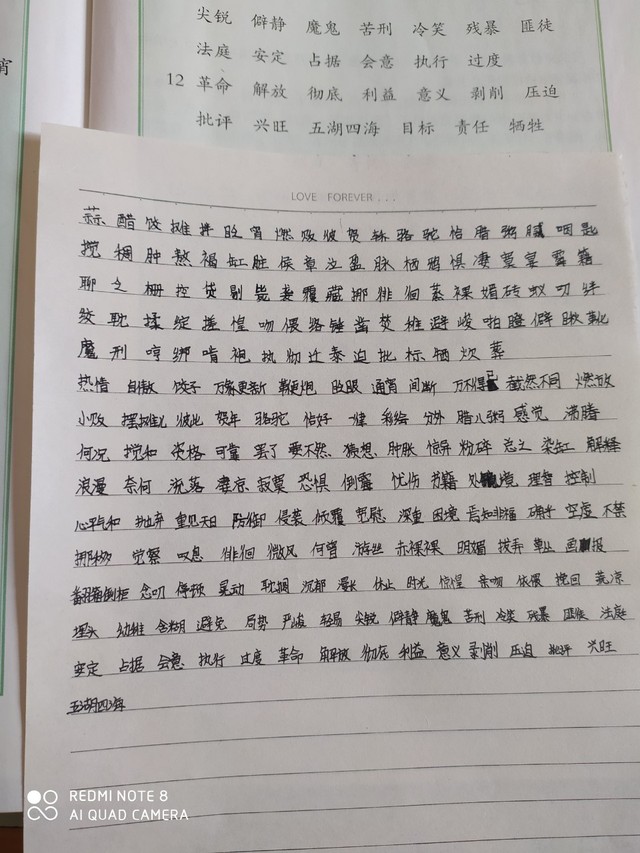 宵
尖锐 僻静 魔鬼 苦刑 冷笑 残暴 匪徒
法庭 安定 占据 会意 执行 过度
12 革命 解放 彻底 利益 意义 剥削 压迫
批评 兴旺 五湖四海 目标 责任 牺牲
LOVE FOREVER...
蒜 醋 饺 摊 拌 眨 宵 燃 贩 彼 贺 轿 骆 驼 恰 腊 粥 腻 咽 匙
搅 稠 肿 熬 褐 缸 脏 侯 章 泣 盈 脉 栖 鸦 惧 凄 寞 宴 霉 籍
聊 乏 栅 控 贷 剔 袭 覆 藏 挪 徘 徊 蒸 裸 媚 砖 蚁 叨 绊
绞 耽 揉 绽 搓 惶 吻 偎 络 锤 凿 焚 稚 避 峻 啪 瞪 僻 瞅 靴
魔 刑 哼 绑 啃 袍 执 彻 迁 泰 迫 批 标 牺 炊 葬
热情 自傲 饺子 万象更新 鞭炮 眨眼 通宵 间断 万不得已 截然不同 燃放
小贩 摆摊儿 彼此 贺年 骆驼 恰好 一律 彩绘 分外 腊八粥 感觉 沸腾
何况 搅和 资格 可靠 罢了 要不然 猜想 肿胀 惊异 粉碎 总之 染缸 解释
浪漫 奈何 流落 凄凉 寂寞 恐惧 倒霉 忧伤 书籍 处境 理智 控制
心平气和 抛弃 重见天日 防御 侵袭 倾覆 宽慰 深重 困境 焉知非福 确乎 空虚 不禁
挪移 觉察 叹息 徘徊 微风 何曾 游丝 赤裸裸 明媚 拔弄 靠山 画报
翻箱倒柜 念叨 停顿 晃动 耽搁 沉郁 漫长 休止 时光 惊惶 亲吻 依偎 挽回 荒凉
埋头 幼稚 含糊 避免 局势 严峻 轻易 尖锐 僻静 魔鬼 苦刑 冷笑 残暴 匪徒 法庭
安定 占据 会意 执行 过度 革命 解放 彻底 利益 意义 剥削 压迫 批评 兴旺
五湖四海
REDMI NOTE 8
AI QUAD CAMERA